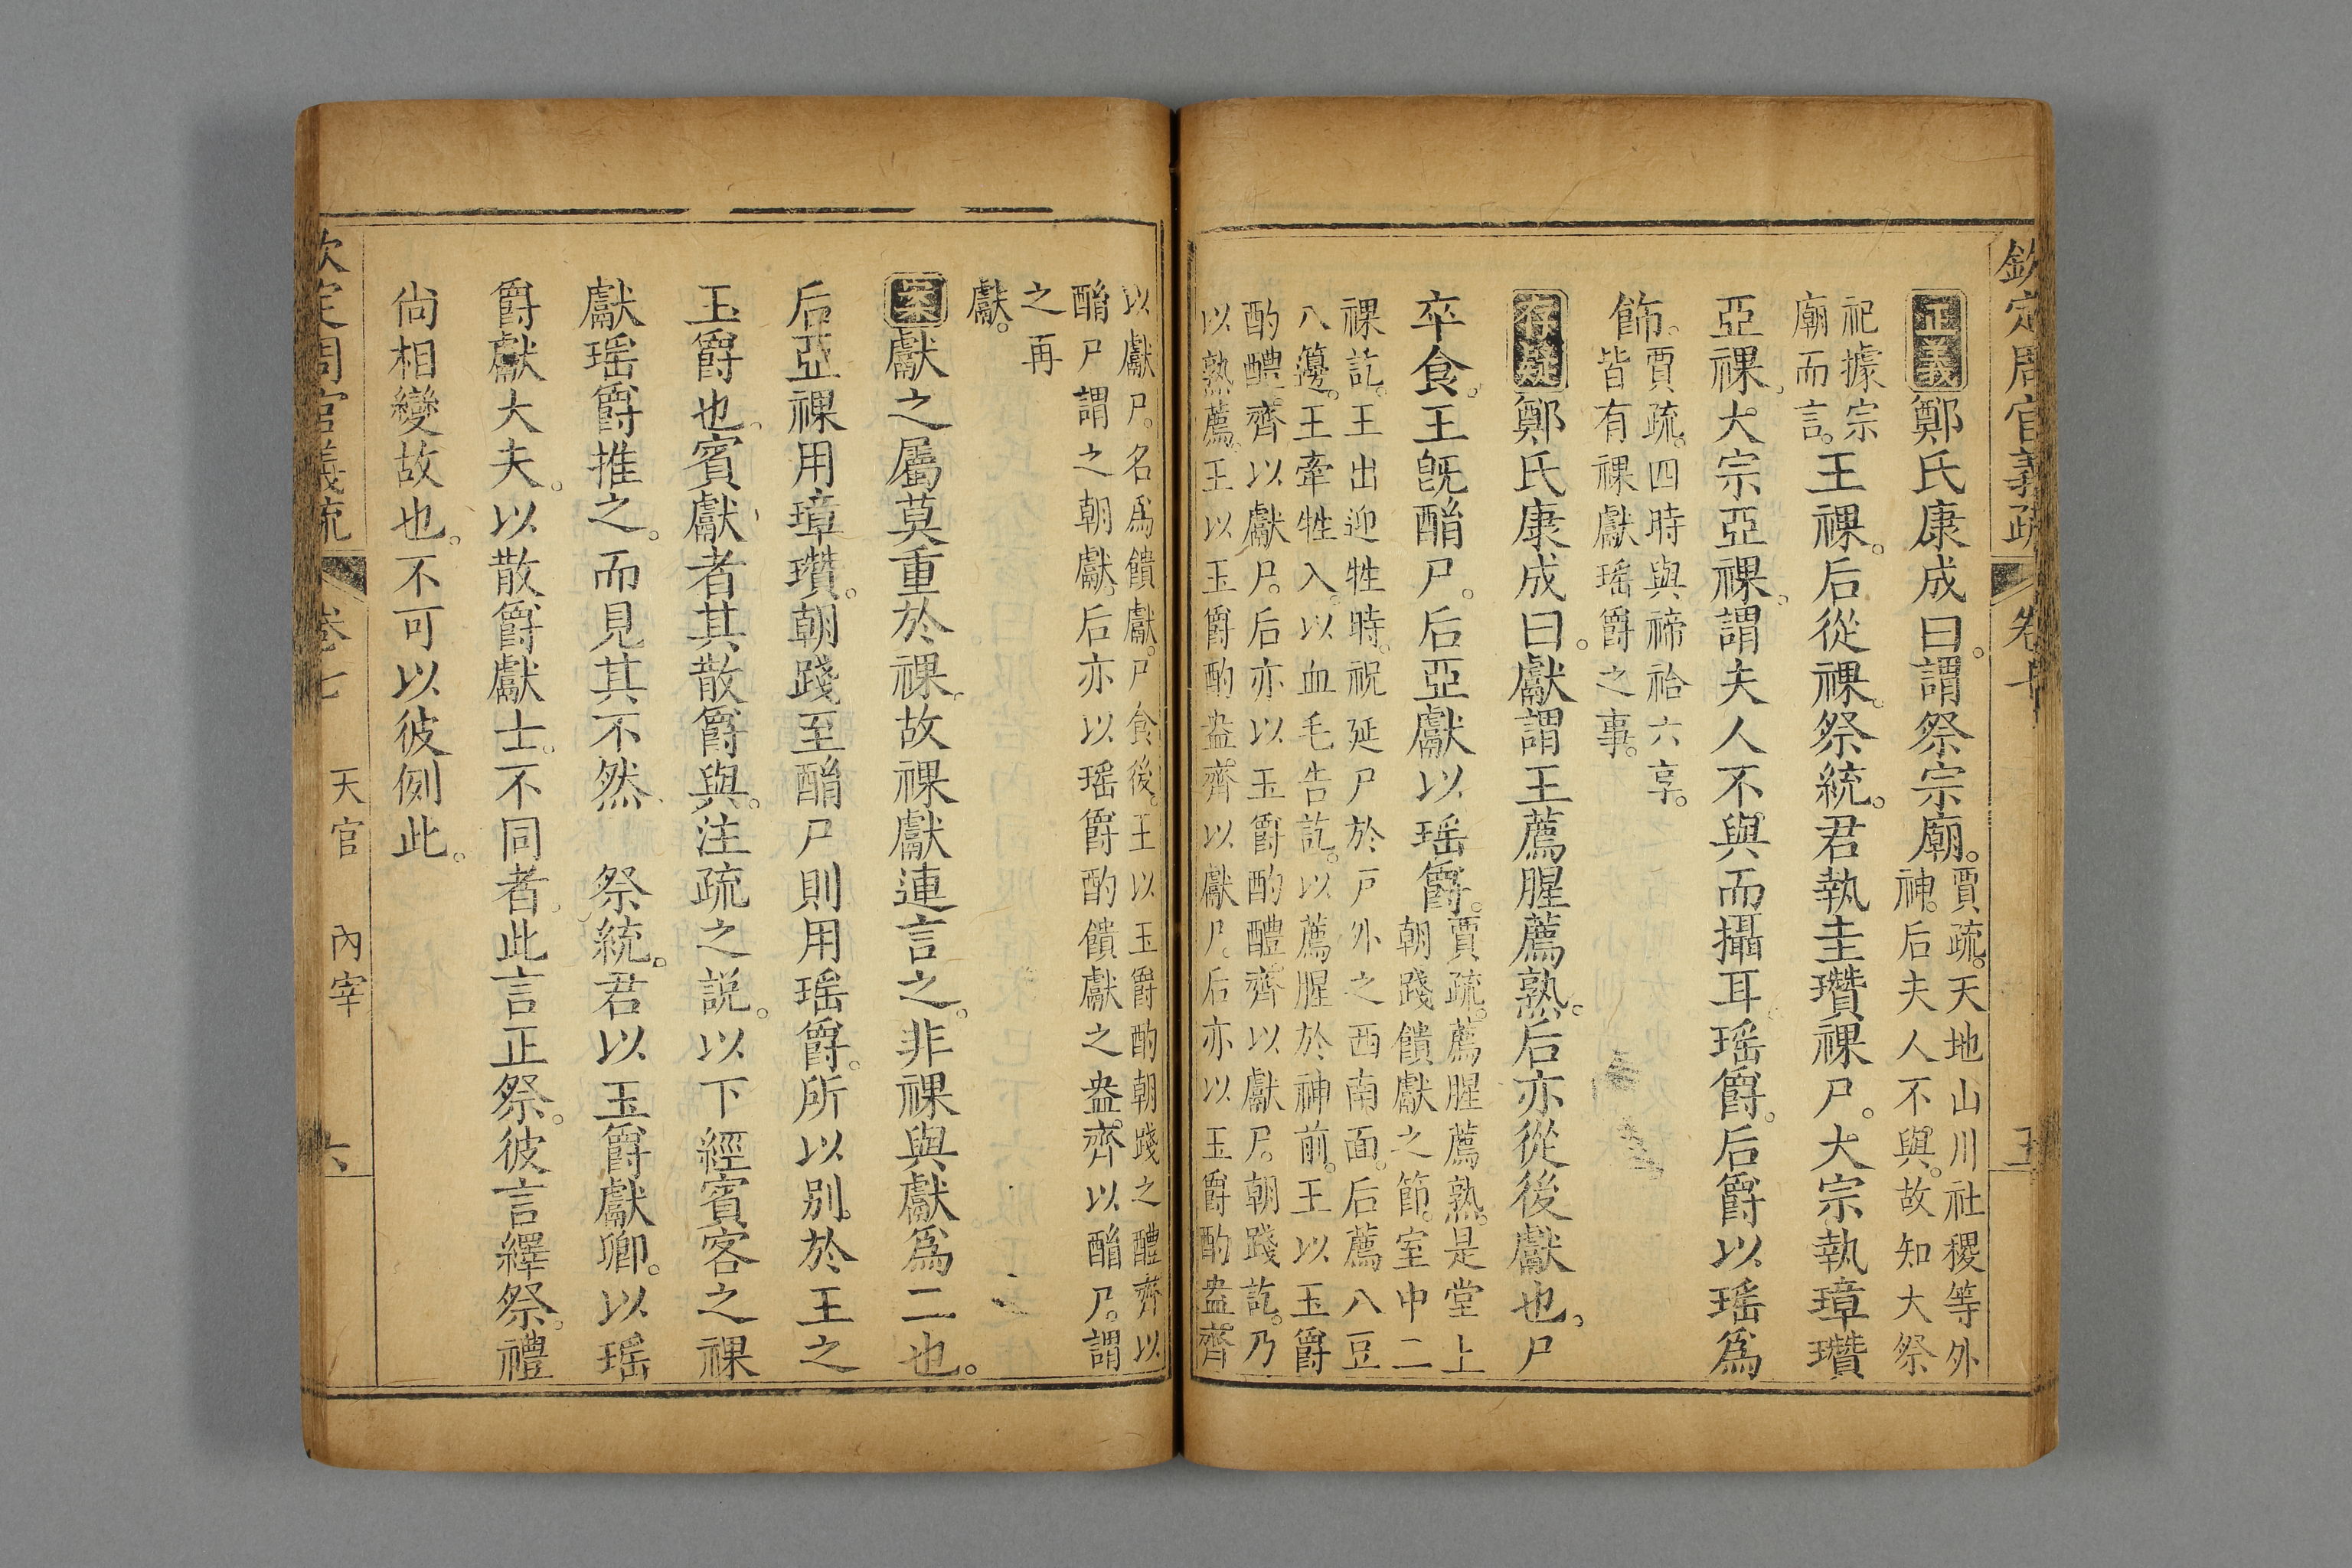 欽定周官義疏 卷七 五
正義鄭氏康成曰。謂祭宗廟。賈疏。天地山川社稷等外
神。后夫人不與。故知大祭
祀據宗
廟而言。王祼。后從祼。祭統。君執圭瓚祼尸。大宗執璋瓚
亞祼。大宗亞祼。謂夫人不與而攝耳。瑤爵。后爵以瑤爲
飾。賈疏。四時與禘祫六享。
皆有祼獻瑤爵之事。
存疑鄭氏康成曰。獻謂王薦腥薦熟。后亦從後獻也。尸
卒食。王旣酳尸。后亞獻以瑤爵。賈疏。薦腥薦熟。是堂上
朝踐饋獻之節。室中二
祼訖。王出迎牲時。祝延尸於戶外之西南面。后薦八豆
八籩。王牽牲入。以血毛告訖。以薦腥於神前。王以玉爵
酌醴。齊以獻尸。后亦以玉爵酌醴齊以獻尸。朝踐訖。乃
以熟薦。王以玉爵酌盎齊以獻尸。后亦以玉爵酌盎齊
以獻尸。名爲饋獻。尸食後。王以玉爵酌朝踐之醴齊以
酳尸謂之朝獻。后亦以瑤爵酌饋獻之盎齊以酳尸。謂
之再
獻。
案獻之屬莫重於祼。故祼獻連言之。非祼與獻爲二也。
后亞祼用璋瓚。朝踐至酳尸則用瑤爵。所以別於王之
玉爵也。賓獻者其散爵與。注疏之説。以下經賓客之祼
獻瑤爵推之。而見其不然 祭統。君以玉爵獻卿。以瑤
爵獻大夫。以散爵獻士。不同者。此言正祭。彼言繹祭。禮
尙相變故也。不可以彼例此。
欽定周官義疏 卷七 天官 內宰 六